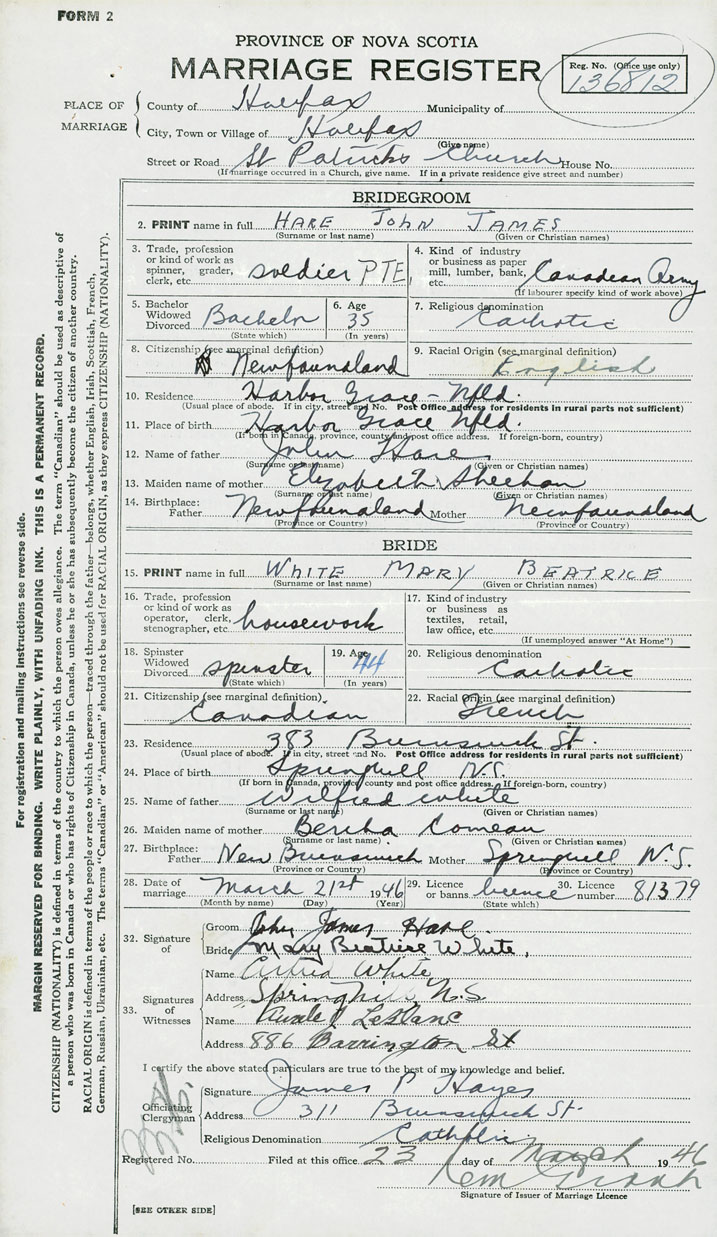 FORM 2
PROVINCE OF NOVA SCOTIA
MARRIAGE REGISTER
Reg. No. (Office use only)
136812
PLACE OF MARRIAGE
County of Halifax Municipality of
City, Town or Village of Halifax
(Give name)
Street or Road St Patricks Church House No.
(If marriage occurred in a Church, give name. If in a private residence give street and number)
BRIDEGROOM
2. PRINT name in full HARE JOHN JAMES
(Surname or last name) (Given or Christian names)
3. Trade, profession or kind of work as spinner, grader, clerk, etc. soldier PTE.
4. Kind of industry or business as paper mill, lumber, bank, etc. Canadian Army
(If labourer specify kind of work above)
5. Bachelor Widowed Divorced Bachelor
(State which)
6. Age 35
(In years)
7. Religious denomination Catholic
8. Citizenship (see marginal definition) Newfoundland
9. Racial Origin (see marginal definition) English
10. Residence Harbor Grace - Nfld.
(Usual place of abode. If in city, street and No. Post Office address for residents in rural parts not sufficient)
11. Place of birth Harbor Grace Nfld.
(If born in Canada, province, county and post office address. If foreign-born, country)
12. Name of father John Hare
(Surname or last name) (Given or Christian names)
13. Maiden name of mother Elizabeth Sheehan
(Surname or last name) (Given or Christian names)
14. Birthplace: Father Newfoundland Mother Newfoundland
(Province or Country) (Province or Country)
BRIDE
15. PRINT name in full WHITE MARY BEATRICE
(Surname or last name) (Given or Christian names)
16. Trade, profession or kind of work as operator, clerk, stenographer, etc. housework
17. Kind of industry or business as textiles, retail, law office, etc.
(If unemployed answer "At Home")
18. Spinster Widowed Divorced spinster
(State which)
19. Age 44
(In years)
20. Religious denomination Catholic
21. Citizenship (see marginal definition). Canadian
22. Racial Origin (see marginal definition) French
23. Residence 383 Brunswick St.
(Usual place of abode. If in city, street and No. Post Office address for residents in rural parts not sufficient)
24. Place of birth Springhill N.S.
(If born in Canada, province, county and post office address. If foreign-born, country)
25. Name of father Wilfred White
(Surname or last name) (Given or Christian names)
26. Maiden name of mother Bertha Comeau
(Surname or last name) (Given or Christian names)
27. Birthplace: Father New Brunswick Mother Springhill N.S.
(Province or Country) (Province or Country)
28. Date of marriage March 21st 1946
(Month by name) (Day) (Year)
29. Licence or banns licence
(State which)
30. Licence number 81379
32. Signature of
Groom John James Hare.
Bride Mary Beatrice White,
33. Signatures of Witnesses
Name White
Address Springhill, N.S
Name LeBlanc
Address 886 Barrington St
I certify the above stated particulars are true to the best of my knowledge and belief.
Officiating Clergyman
Signature James P Hayes
Address 311 Brunswick St.
Religious Denomination Catholic
Registered No. Filed at this office 23 day of March 1946
Signature of Issuer of Marriage Licence
[SEE OTHER SIDE]
For registration and mailing instructions see reverse side.
MARGIN RESERVED FOR BINDING. WRITE PLAINLY, WITH UNFADING INK. THIS IS A PERMANENT RECORD.
CITIZENSHIP (NATIONALITY) is defined in terms of the country to which the person owes allegiance. The term "Canadian" should be used as descriptive of
a person who was born in Canada or who has rights of Citizenship in Canada, unless he or she has subsequently become the citizen of another country.
RACIAL ORIGIN is defined in terms of the people or race to which the person—traced through the father—belongs, whether English, Irish, Scottish, French,
German, Russian, Ukrainian, etc. The terms "Canadian" or "American" should not be used for RACIAL ORIGIN, as they express CITIZENSHIP (NATIONALITY).